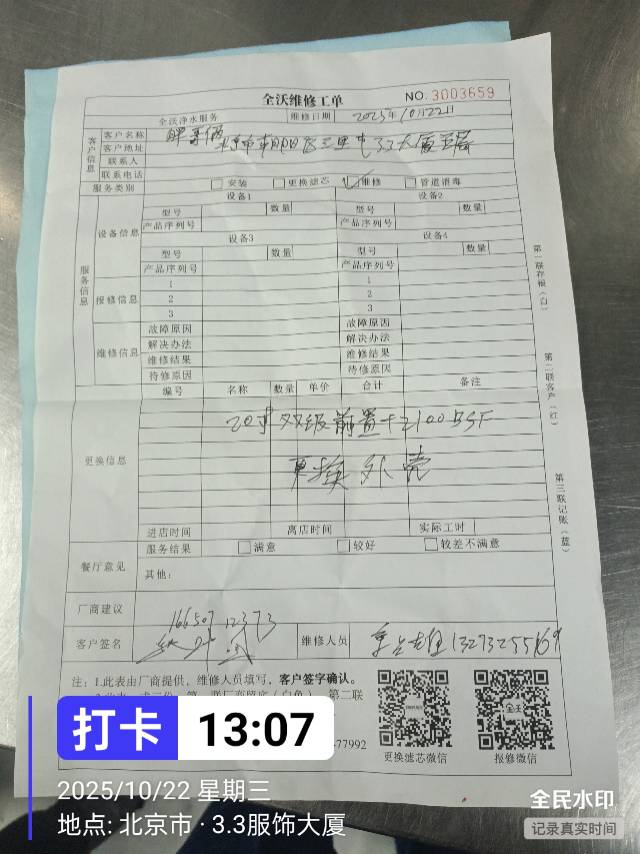 全沃维修工单
NO. 3003659
全沃净水服务
维修日期 2025年10月22日
客户信息
客户名称
客户地址 北京市朝阳区三里屯3.3大厦五层
联系人
联系电话
服务类别 安装 更换滤芯 ✓维修 管道消毒
服务信息
设备信息
设备1 设备2
型号 数量 型号 数量
产品序列号 产品序列号
设备3 设备4
型号 数量 型号 数量
产品序列号 产品序列号
报修信息
1 1
2 2
3 3
维修信息
故障原因 故障原因
解决办法 解决办法
维修结果 维修结果
待修原因 待修原因
更换信息
编号 名称 数量 单价 合计 备注
20寸双级前置+2100BSF
更换外壳
进店时间 离店时间 实际工时
餐厅意见
服务结果 满意 较好 较差不满意
其他:
厂商建议
16650712373
客户签名
维修人员 13273255169
注: 1.此表由厂商提供, 维修人员填写, 客户签字确认。
第二联
-77992
更换滤芯微信
报修微信
第一联存根(白)
第二联客户(红)
第三联记账(蓝)
打卡 13:07
2025/10/22 星期三
地点: 北京市 · 3.3服饰大厦
全民水印
记录真实时间